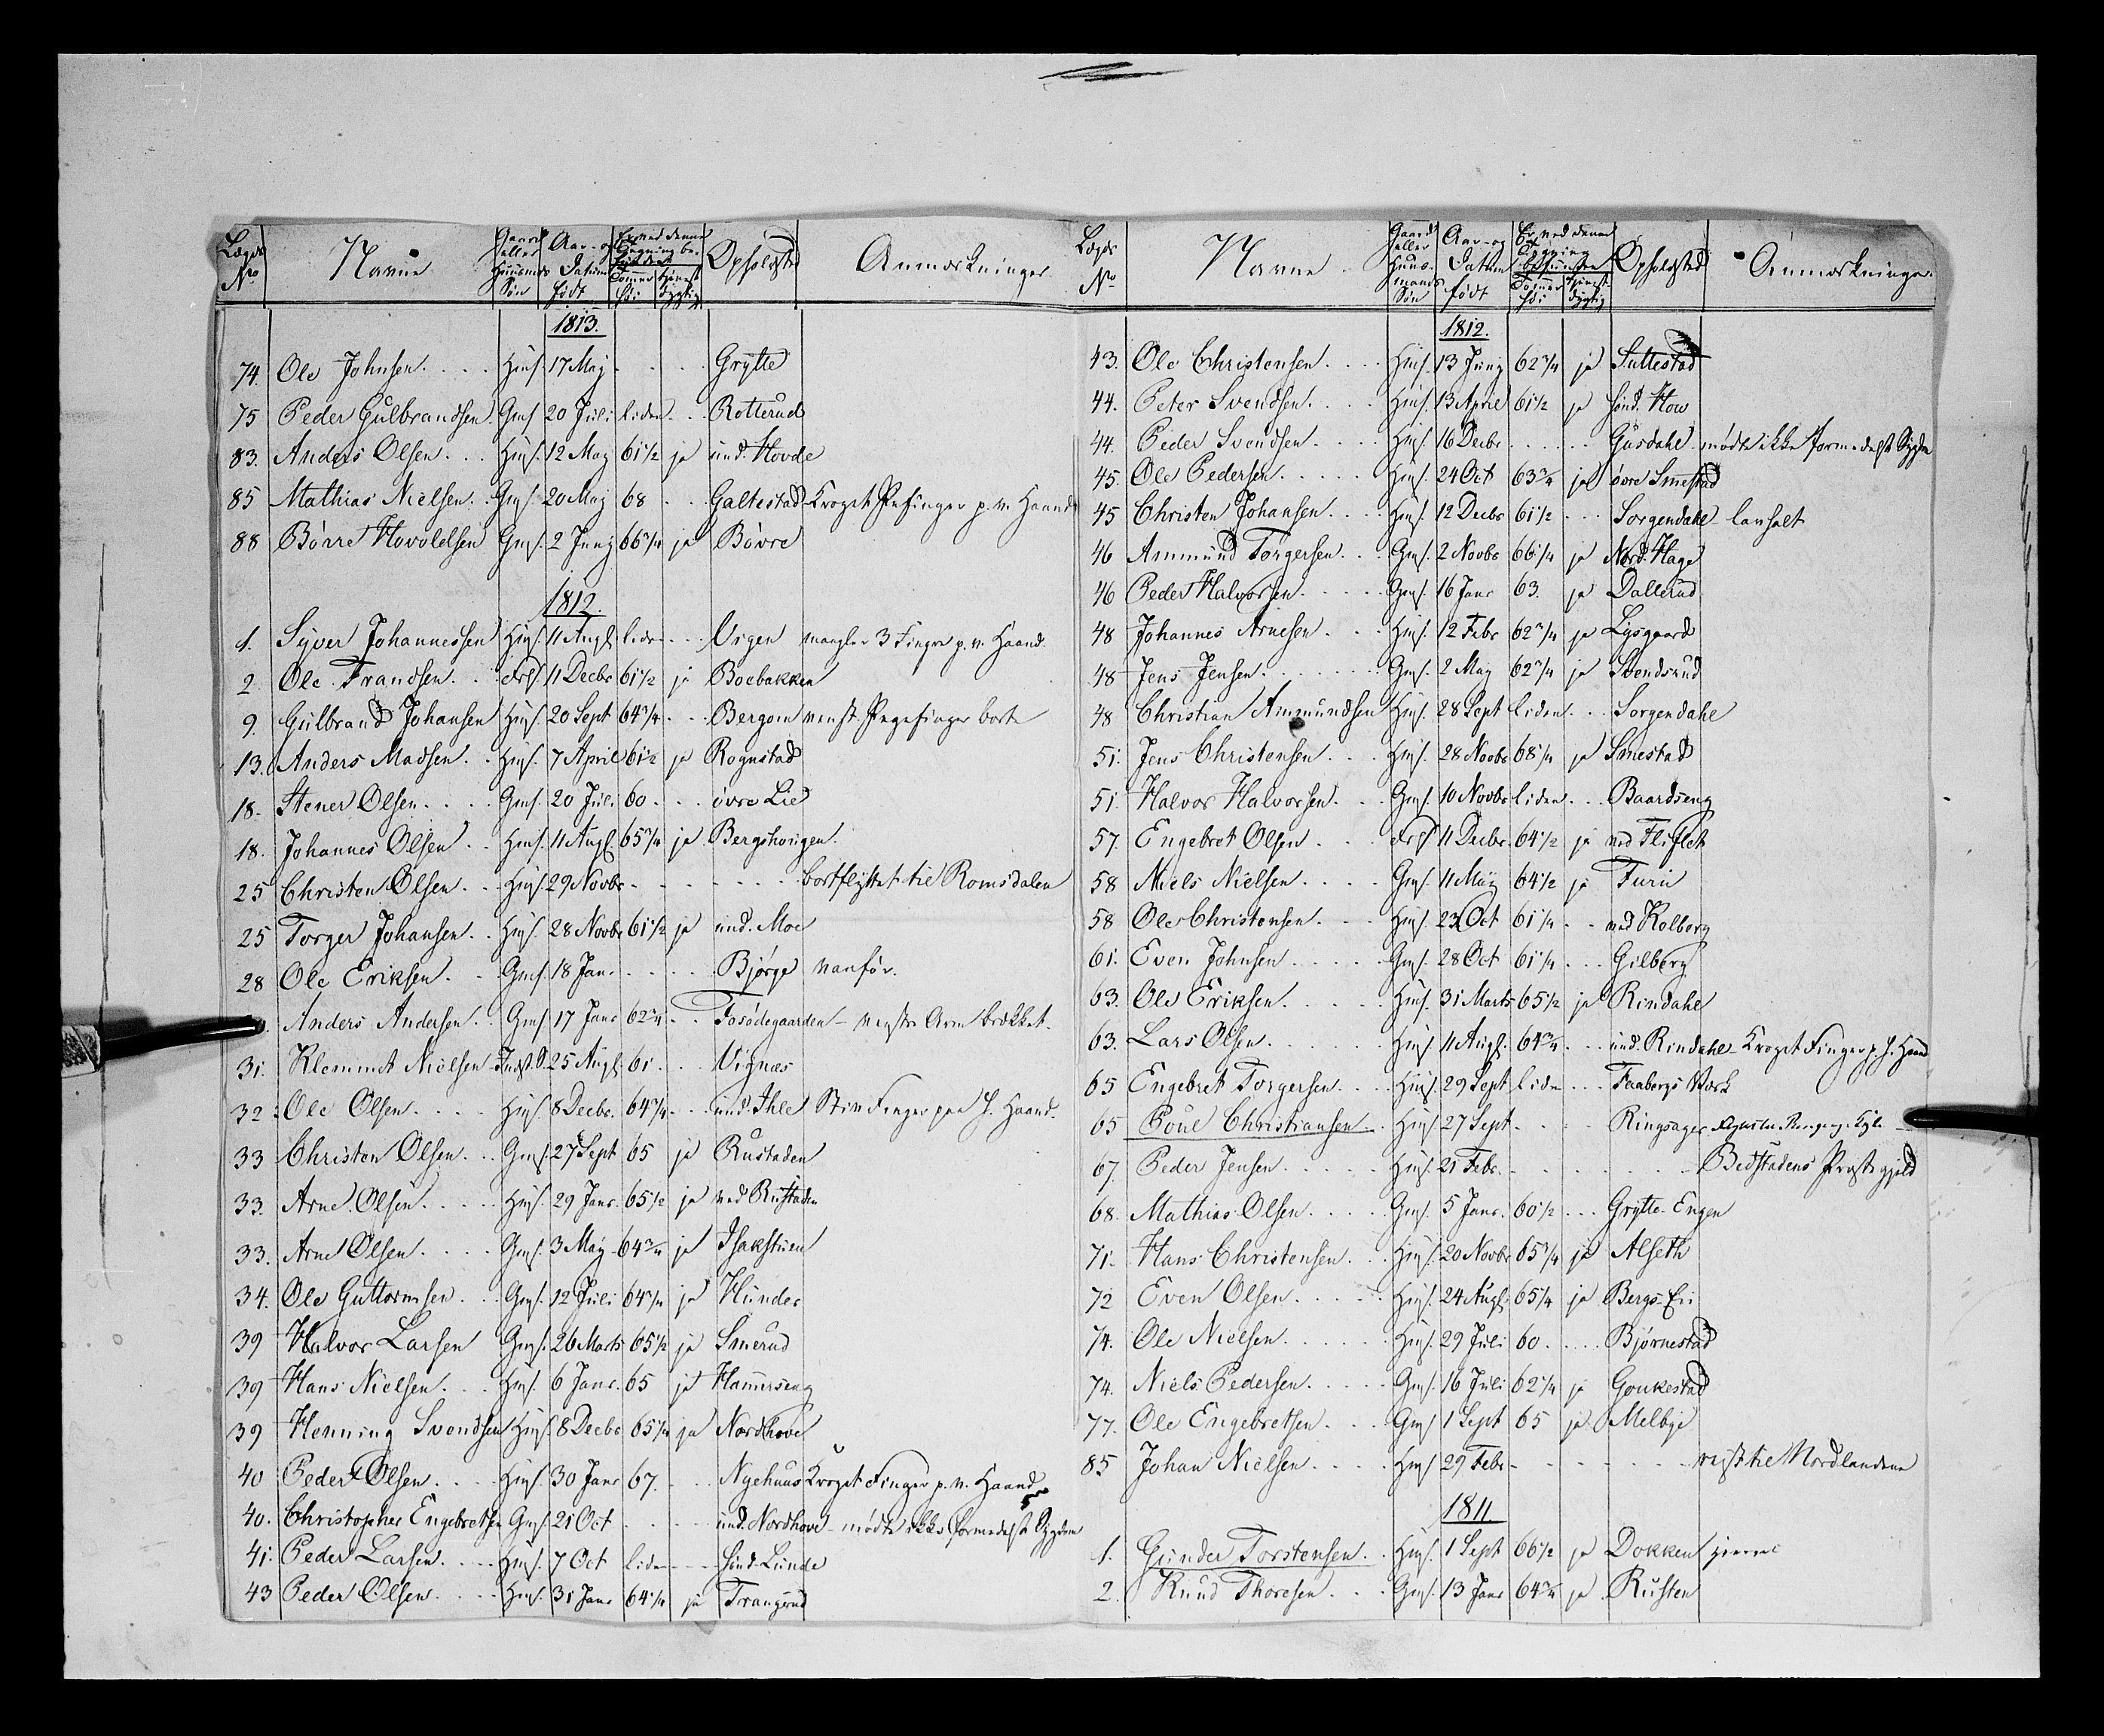 Lægds No Navne Gaard eller Huusmds Søn Aar- og Datum født Er ved denne Signing befunden Tommer høi tjenstdygtig Opholdsted Anmærkninger
1813.
74. Ole Johnsen Hmf. 17 May Grytte
75 Peder Gulbrandsen Gmf 20 Juli liden Rotterud
83. Anders Olsen Hmf. 12 May 61 1/2 ja und. Hovde
85 Mathias Nielsen Gmf. 20 May 68 Galtestad Kroget Pefinger p. v. Haand
88 Börre Hovolelsen Gmf. 2 Juny 66 3/4 ja Bövre
1812.
1. Syver Johannessen Hmf. 11 Augf. liden Vigen mangler 3 Fingre p. v. Haand
2 Ole Frandsen 11 Decbr 61 1/2 ja Boebakken
9. Gulbrand Johansen Hmf. 20 Sept 64 3/4 Bergom venst. Pegefinger borte
13. Anders Madsen Hmf. 7 April 61 1/2 ja Rognstad
18. Stener Olsen Gmf. 20 Juli 60 övre Lie
18. Johannes Olsen Hmf. 11 Augf. 65 3/4 ja Bergshougen
25 Christen Olsen Hmf 29 Novbr bortflyttet til Romsdalen
25 Torger Johansen Hmf. 28 Novbr 61 1/2 ja und. Moe
28 Ole Eriksen Gmf. 18 Janr Bjørge vanför
Anders Andersen Gmf. 17 Janr 62 3/4 Fosödegaarden - venstre Arm brækket
31. Klemmet Nielsen Indst. S. 25 Augf. 61 Vignæs
32. Ole Olsen Hmf. 8 Decbr. 64 3/4 und Ihle Stiv Finger paa h. Haand
33 Christen Olsen Gmf. 27 Sept 65 ja Rustaden
33. Arne Olsen Hmf. 29 Janr. 65 1/2 ja ned Rustaden
33. Arne Olsen Gmf. 3 May 64 3/4 ja Isakstuen
34. Ole Guttormsen Gmf. 12 Juli 64 3/4 ja Hunder
39 Halvor Larsen Gmf. 26 Marts 65 1/2 ja Smerud
39 Hans Nielsen Hmf. 6 Janr. 65 ja Hammerseng
39 Henning Svendsen Hmf. 8 Decbr 65 1/4 ja Nordhove
40 Peder Olsen Hmf. 30 Janr 67. Nyehuus Kroget Finger p. v. Haand
40. Christopher Engebretsen Gmf. 21 Oct und. Nordhove - mødte ikke formedelst Sygdom
41. Peder Larsen Hmf. 7 Oct liden sönd. Lunde
43 Peder Olsen Hmf. 31 Janr 64 1/4 ja Trangsrud
Lægds No Navne Gaard eller Huusmands Søn Aar- og Datum født Er ved denne Signing befunden Tommer høi tjenstdygtig Opholdsted Anmærkninger
1812.
43. Ole Christensen Hmf. 13 Juny 62 3/4 ja Suttestad
44. Peter Svendsen Hmf. 13 April 61 1/2 ja sönd. How
44. Peder Svendsen Hmf. 16 Decbr Gusdahl mødte ikke formedelst Sygdom
45. Ole Pedersen Hmf. 24 Oct 63 3/4 ja övre Smestad
45 Christen Johansen Hmf. 12 Decbr 61 1/2 Sorgendahl lavhalt
46 Ammund Torgersen Gmf. 2 Novbr 66 1/4 ja Nord. Hage
46 Peder Halvorsen Gmf. 16 Janr 63. ja Dallerud
48 Johannes Arnesen Hmf. 12 Febr 62 3/4 ja Lysgaard
48 Jens Jensen Gmf. 2 May 62 3/4 ja Svendsrud
48 Christian Ammundsen Hmf. 28 Sept liden Sorgendahl
51. Jens Christensen Hmf. 28 Novbr 68 1/4 ja Smestad
51. Halvor Halvorsen Gmf. 10 Novbr liden Baardseng
57. Engebret Olsen 11 Decbr. 64 1/2 ja ned Fliflet
58 Niels Nielsen Gmf. 11 May 64 1/2 ja Furu
58 Ole Christensen Hmf. 23 Oct 61 1/4 ned Kolberg
61. Even Johnsen Gmf. 28 Oct 61 1/4 Gilberg
63. Ole Eriksen Hmf. 31 Marts 65 1/2 ja Rindahl
63. Lars Olsen Hmf 11 Augf. 64 3/4 und. Rindahl - Kroget Finger p. h. Haand
65 Engebret Torgersen Hmf. 29 Sept liden Faabergs Værk
65 Poul Christiansen Hmf. 27 Sept Ringsager
67. Peder Jensen Hmf. 21 Febr. Bedstadens Præstegjeld
68. Mathias Olsen Gmf. 5 Janr. 60 1/2 Grytte-Engen
71. Hans Christensen Hmf. 20 Novbr 65 3/4 ja Alseth
72 Even Olsen Hmf. 24 Augf. 65 1/4 ja Bergs-Eie
74. Ole Nielsen Hmf. 29 Juli 60. Bjørnestad
74. Niels Pedersen Gmf. 16 Juli 62 1/4 ja Goukestad
77. Ole Engebretsen Gmf 1 Sept 65 ja Melbye
85 Johan Nielsen Hmf 29 Febr rejst til Nordlandene
1811
1. Gunder Torstensen Hmf. 1 Sept 66 1/2 ja Dokken
2. Knud Thoresen Gmf. 13 Janr 64 3/4 ja Rusten